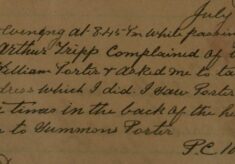 July
evening at 8.45 Pm while passin
Arthur Tripp Complained of
William Porter & asked me to ta
dress which I did. I saw Porter
times in the back of the he
to Summons Porter
P.C.